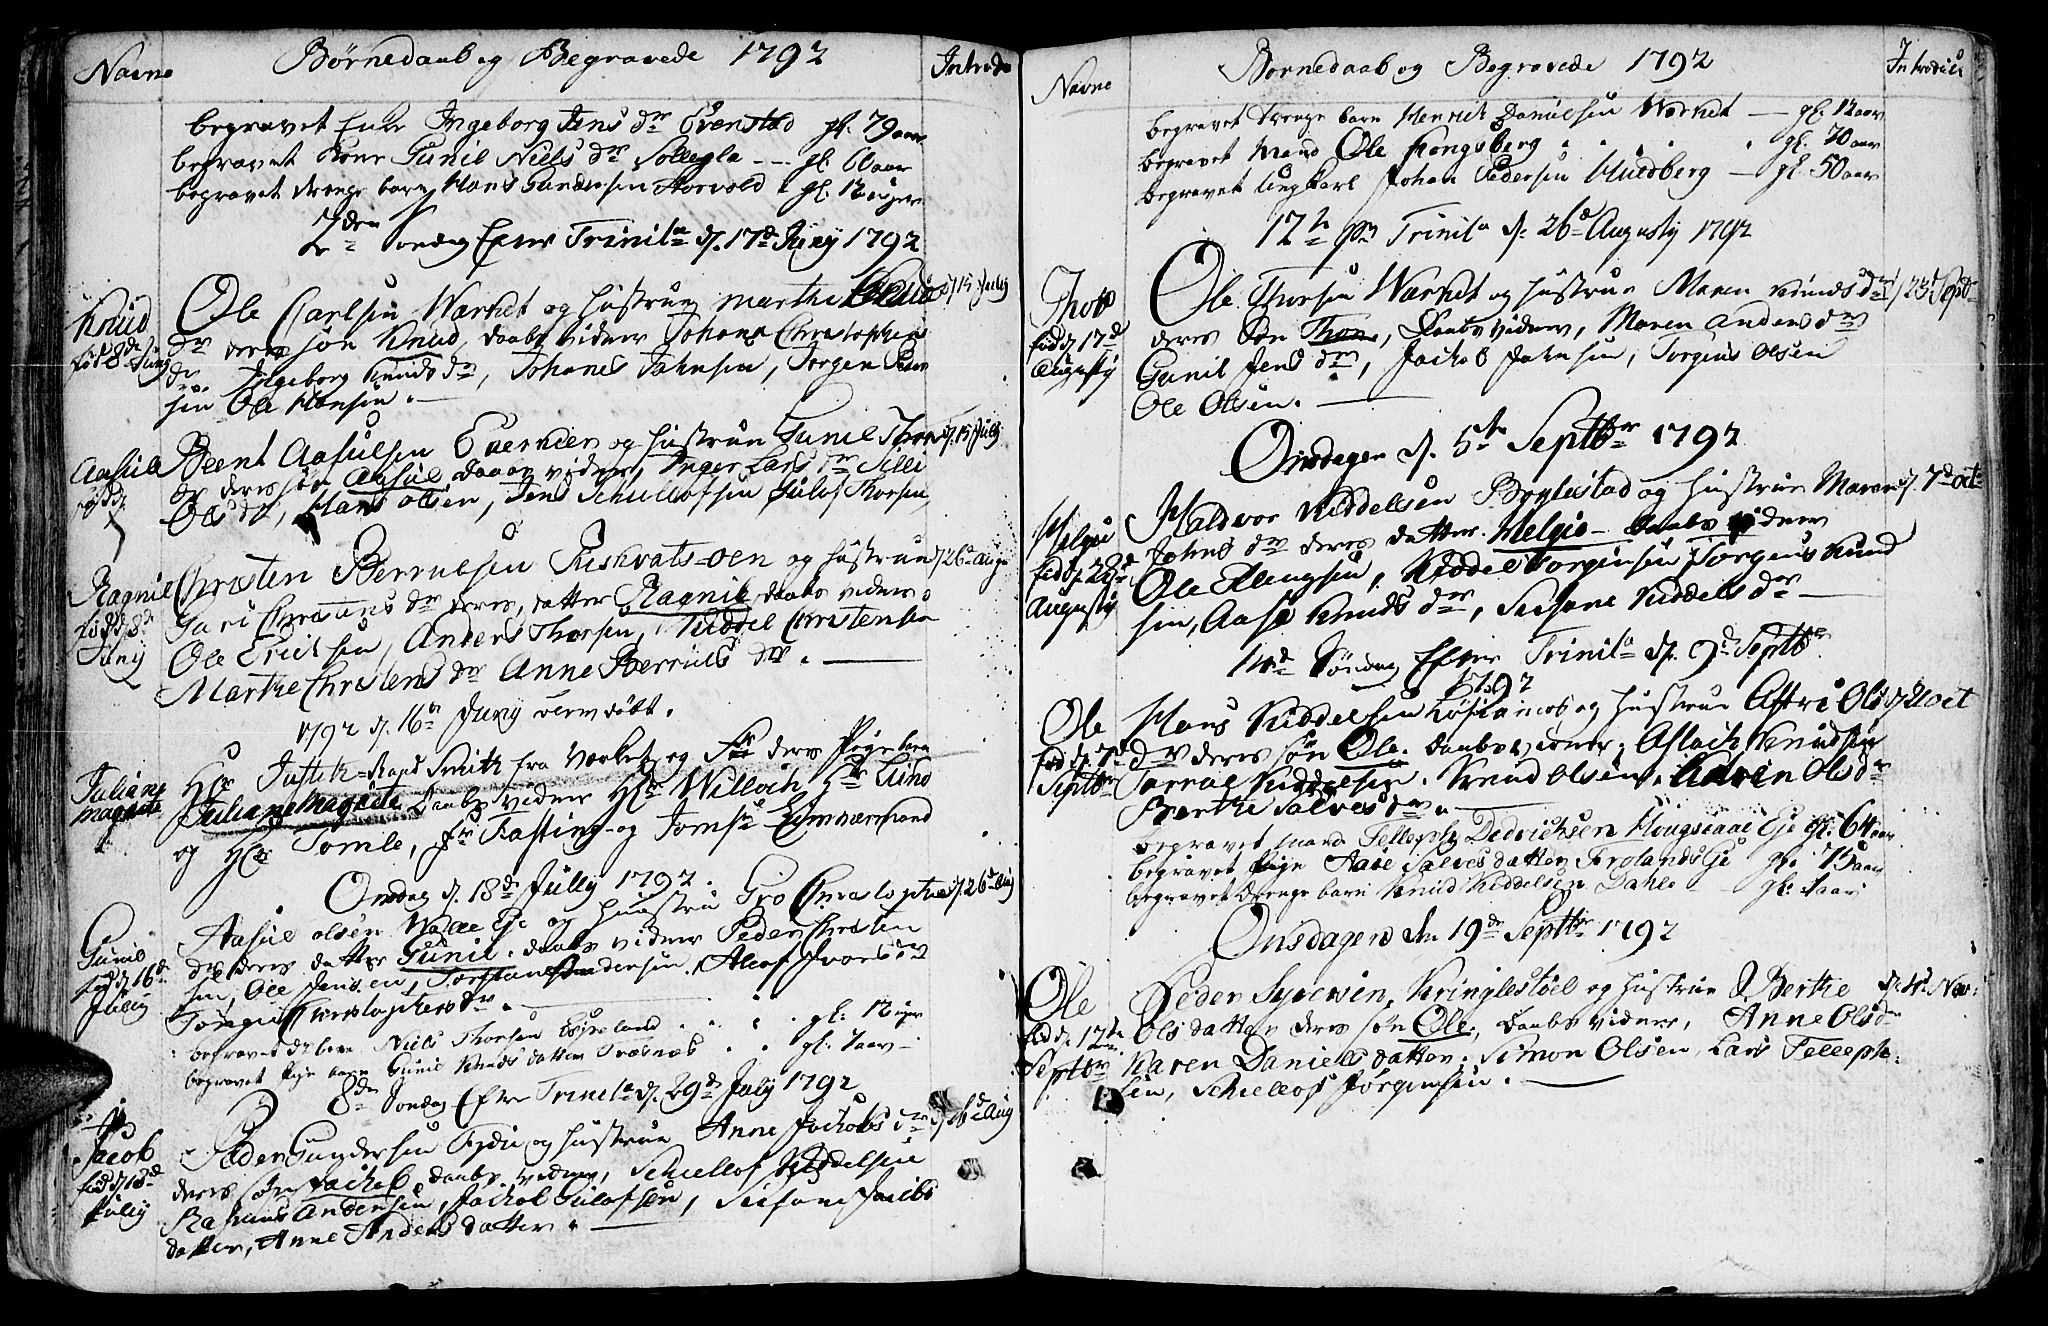 Navne Børnedaab og Begravede 1792 Introdu
begravet Enke Ingeborg Jens dr Evenstad gl. 79 aar
begravet Kone Gunil Niels dr Sollegla --- gl. 60 aar
begravet drenge barn Hans Gundersen Storvold gl. 12 uger
2den Søndag Efter Trinita d. 17d Juny 1792
Knud
fød 8de Juny
Ole Carlsen Warket og hustrue marthe d. 15 July
dr deres søn Knud, daabs vidner Johana Christophers
dr Ingeborg Knuds dr, Johanes Jahnsen, Torgen Peder
sen Ole Hansen.
Aasul
fød d.
7
Beent Aasulsen og hustrue Gunil Thor d. 15 July
dr deres søn Aasul, daabs vidner, Inger Lars dr Silli
Ols dr, Hans Olsen, Jens Schullofsen Gulof Thorsen,
Ragnil
fød d. 8d
Juny
Christen Berrulsen og hustrue d. 26d Aug
Gari Christens dr deres datter Ragnil daabs vidner
Ole Erichsen, Anders Thorsen, Kiddel Christensen
Marthe Christens dr Anne Berruls dr.
1792 d. 16n Juny døbt.
Juliane
magrete
Hr Justits-Raad Smith fra Værket og Fr deres Pige barn
Juliane Magrete Daabs vidner Hr Willoch Hr Lund
og Hr Tomle, fr og
Onsdag d. 18de Jully 1792.
Gunil
fød d. 16de
Julig
Aasul Olsen Eje og hustru Gro Christophers d. 26d Aug
dr deres datter Gunil. daabs vidner Peder Christen
sen, Ole Jensen, Torstan Andersen, Aleof Ivers dr
Christophers dr.
begravet Niels Thorsen gl. 12 uger
begravet Pige barn Gunil Knuds datter Træsnæs gl. 7 aar
8de Søndag Efter Trinita d. 29de July 1792
Jacob
fød d. 18de
July
Peder Gundersen og hustrue Anne Jachobs dr d. Aug
deres søn Jachob, daabs vidner, Schiellof Kiddelsen
Rasmus Andersen, Jachob Gulofsen, Susane Jacobs
datter, Anne Anders datter.
Navne Børnedaab og Begravede 1792 Introdu
begravet drenge barn Henrich Danielsen Warket — gl. 12 aar
begravet mand Ole Kongsberg gl. 70 aar
begravet ungkarl Johan Pedersen Huldberg — gl. 50 aar
12te pn Trinita d. 26d Augusty 1792
Thor
fød d. 17de
Augusty
Ole Thorsen Warket og hustrue Maren Knuds dr d. 23d Septr
deres Søn Thor, Daabs vidner, Maren Anders dr
Gunil Jens dr, Jachob Jahnsen, Torgius Olsen
Ole Olsen.
Onsdagen d. 5te Septbr 1792
Helgie
fød d. 22d
Augusty
Haldvor Kiddelsen Boylestad og hustrue Maren d. 7d oct
Johns dr deres datter Helgie — daabs vidner
Ole Ellengsen, Kiddel Torgiersen Torgius Knud
sen, Aase Knuds dr, Susane Kiddels dr
14d Søndag Efter Trinita d. 9d Septbr
1792
Ole
fød d. 7d
Septbr
Hans Kiddelsen og hustrue Astri Ols d. 21 oct
dr deres søn Ole. daabs vidner, Aslach Knudsen
Tarral Kiddelsen. Knud Olsen. Karin Ols dr
Berthe Salves dr.
begravet mand Telleph Dedrichsen Hougeaae Eje gl. 64 aar
begravet Pige Aase Salves datter Frolands Eje gl. 75 aar
begravet Drenge barn Knud Kiddelsen Dahle gl. 1 aar
Onsdagen den 19de Septbr 1792
Ole
fød d. 12te
Septbr
Peder Syversen, Kringlestoel og hustrue Berthe d. 4d Nov
Ols datter deres søn Ole, Daabs vidner, Anne Ols dr
Karen Daniels datter. Simon Olsen, Lars Telleph
sen, Schiellof Jørgensen.